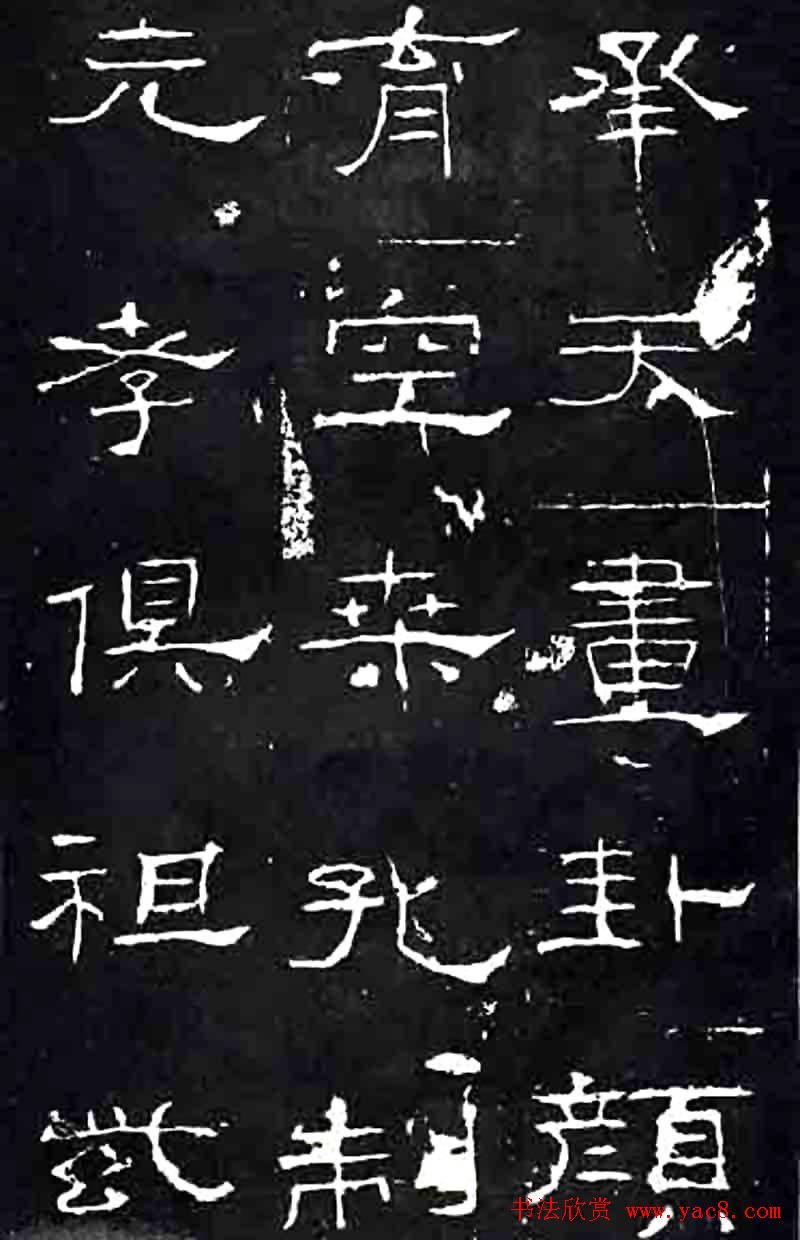 承天畫卦顏
育空桒孔制
元孝俱祖紫
书法欣赏 www.yac8.com